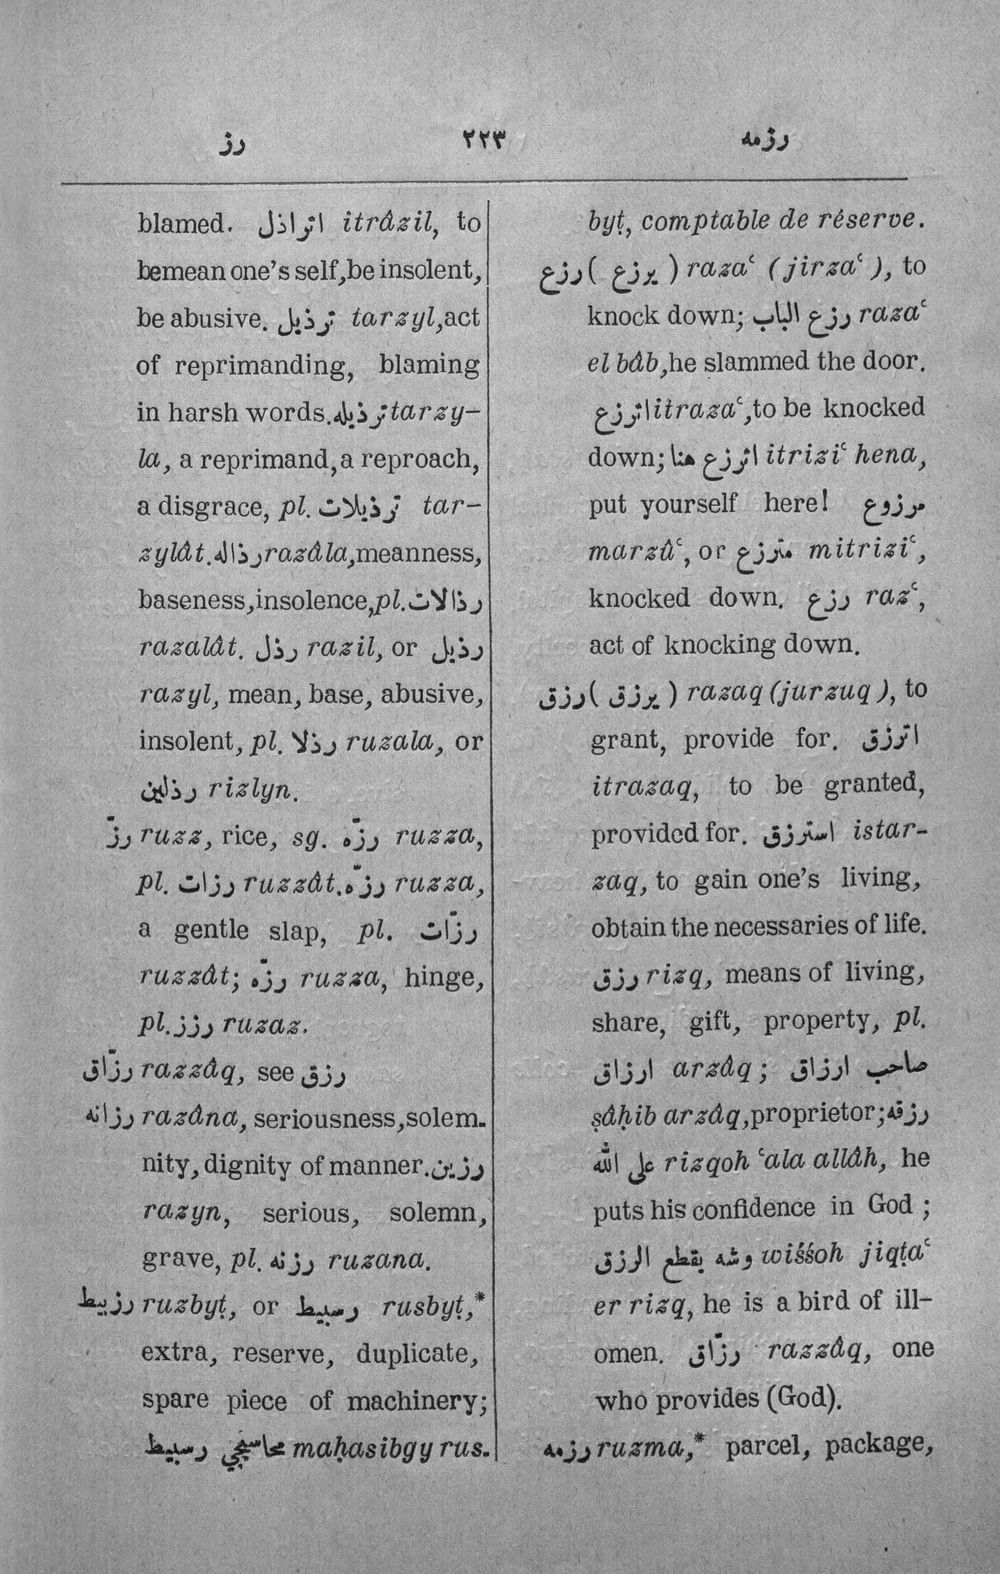 رز ٢٢٣ رزمه
blamed. اترازل itrâzil, to
bemean one's self, be insolent,
be abusive. ترذيل tarzyl, act
of reprimanding, blaming
in harsh words. ترذيله tarzy-
la, a reprimand, a reproach,
a disgrace, pl. ترذيلات tar-
zylât. رذاله razâla, meanness,
baseness, insolence, pl. رذالات
razalât. رذل razil, or رذيل
razyl, mean, base, abusive,
insolent, pl. رذلا ruzala, or
رذلين rizlyn.
رزّ ruzz, rice, sg. رزّه ruzza,
pl. رزات ruzzât. رزّه ruzza,
a gentle slap, pl. رزّات
ruzzât; رزّه ruzza, hinge,
pl. رزز ruzaz.
رزّاق razzâq, see رزق
رزانه razâna, seriousness, solem-
nity, dignity of manner. رزين
razyn, serious, solemn,
grave, pl. رزنه ruzana.
رزبيط ruzbyṭ, or رسبيط rusbyṭ,*
extra, reserve, duplicate,
spare piece of machinery;
محاسبجي رسبيط maḥasibgy rus-
byṭ, comptable de réserve.
رزع (يرزع) razaʿ (jirzaʿ), to
knock down; رزع الباب razaʿ
el bâb, he slammed the door.
اترزع itrazaʿ, to be knocked
down; اترزع هنا itriziʿ hena,
put yourself here! مرزوع
marzûʿ, or مترزع mitriziʿ,
knocked down. رزع razʿ,
act of knocking down.
رزق (يرزق) razaq (jurzuq), to
grant, provide for. اترزق
itrazaq, to be granted,
provided for. استرزق istar-
zaq, to gain one's living,
obtain the necessaries of life.
رزق rizq, means of living,
share, gift, property, pl.
ارزاق arzâq; صاحب ارزاق
ṣâḥib arzâq, proprietor; رزقه
على الله rizqoh ʿala allâh, he
puts his confidence in God;
وشه يقطع الرزق wiśśoh jiqṭaʿ
er rizq, he is a bird of ill-
omen. رزّاق razzâq, one
who provides (God).
رزمه ruzma,* parcel, package,